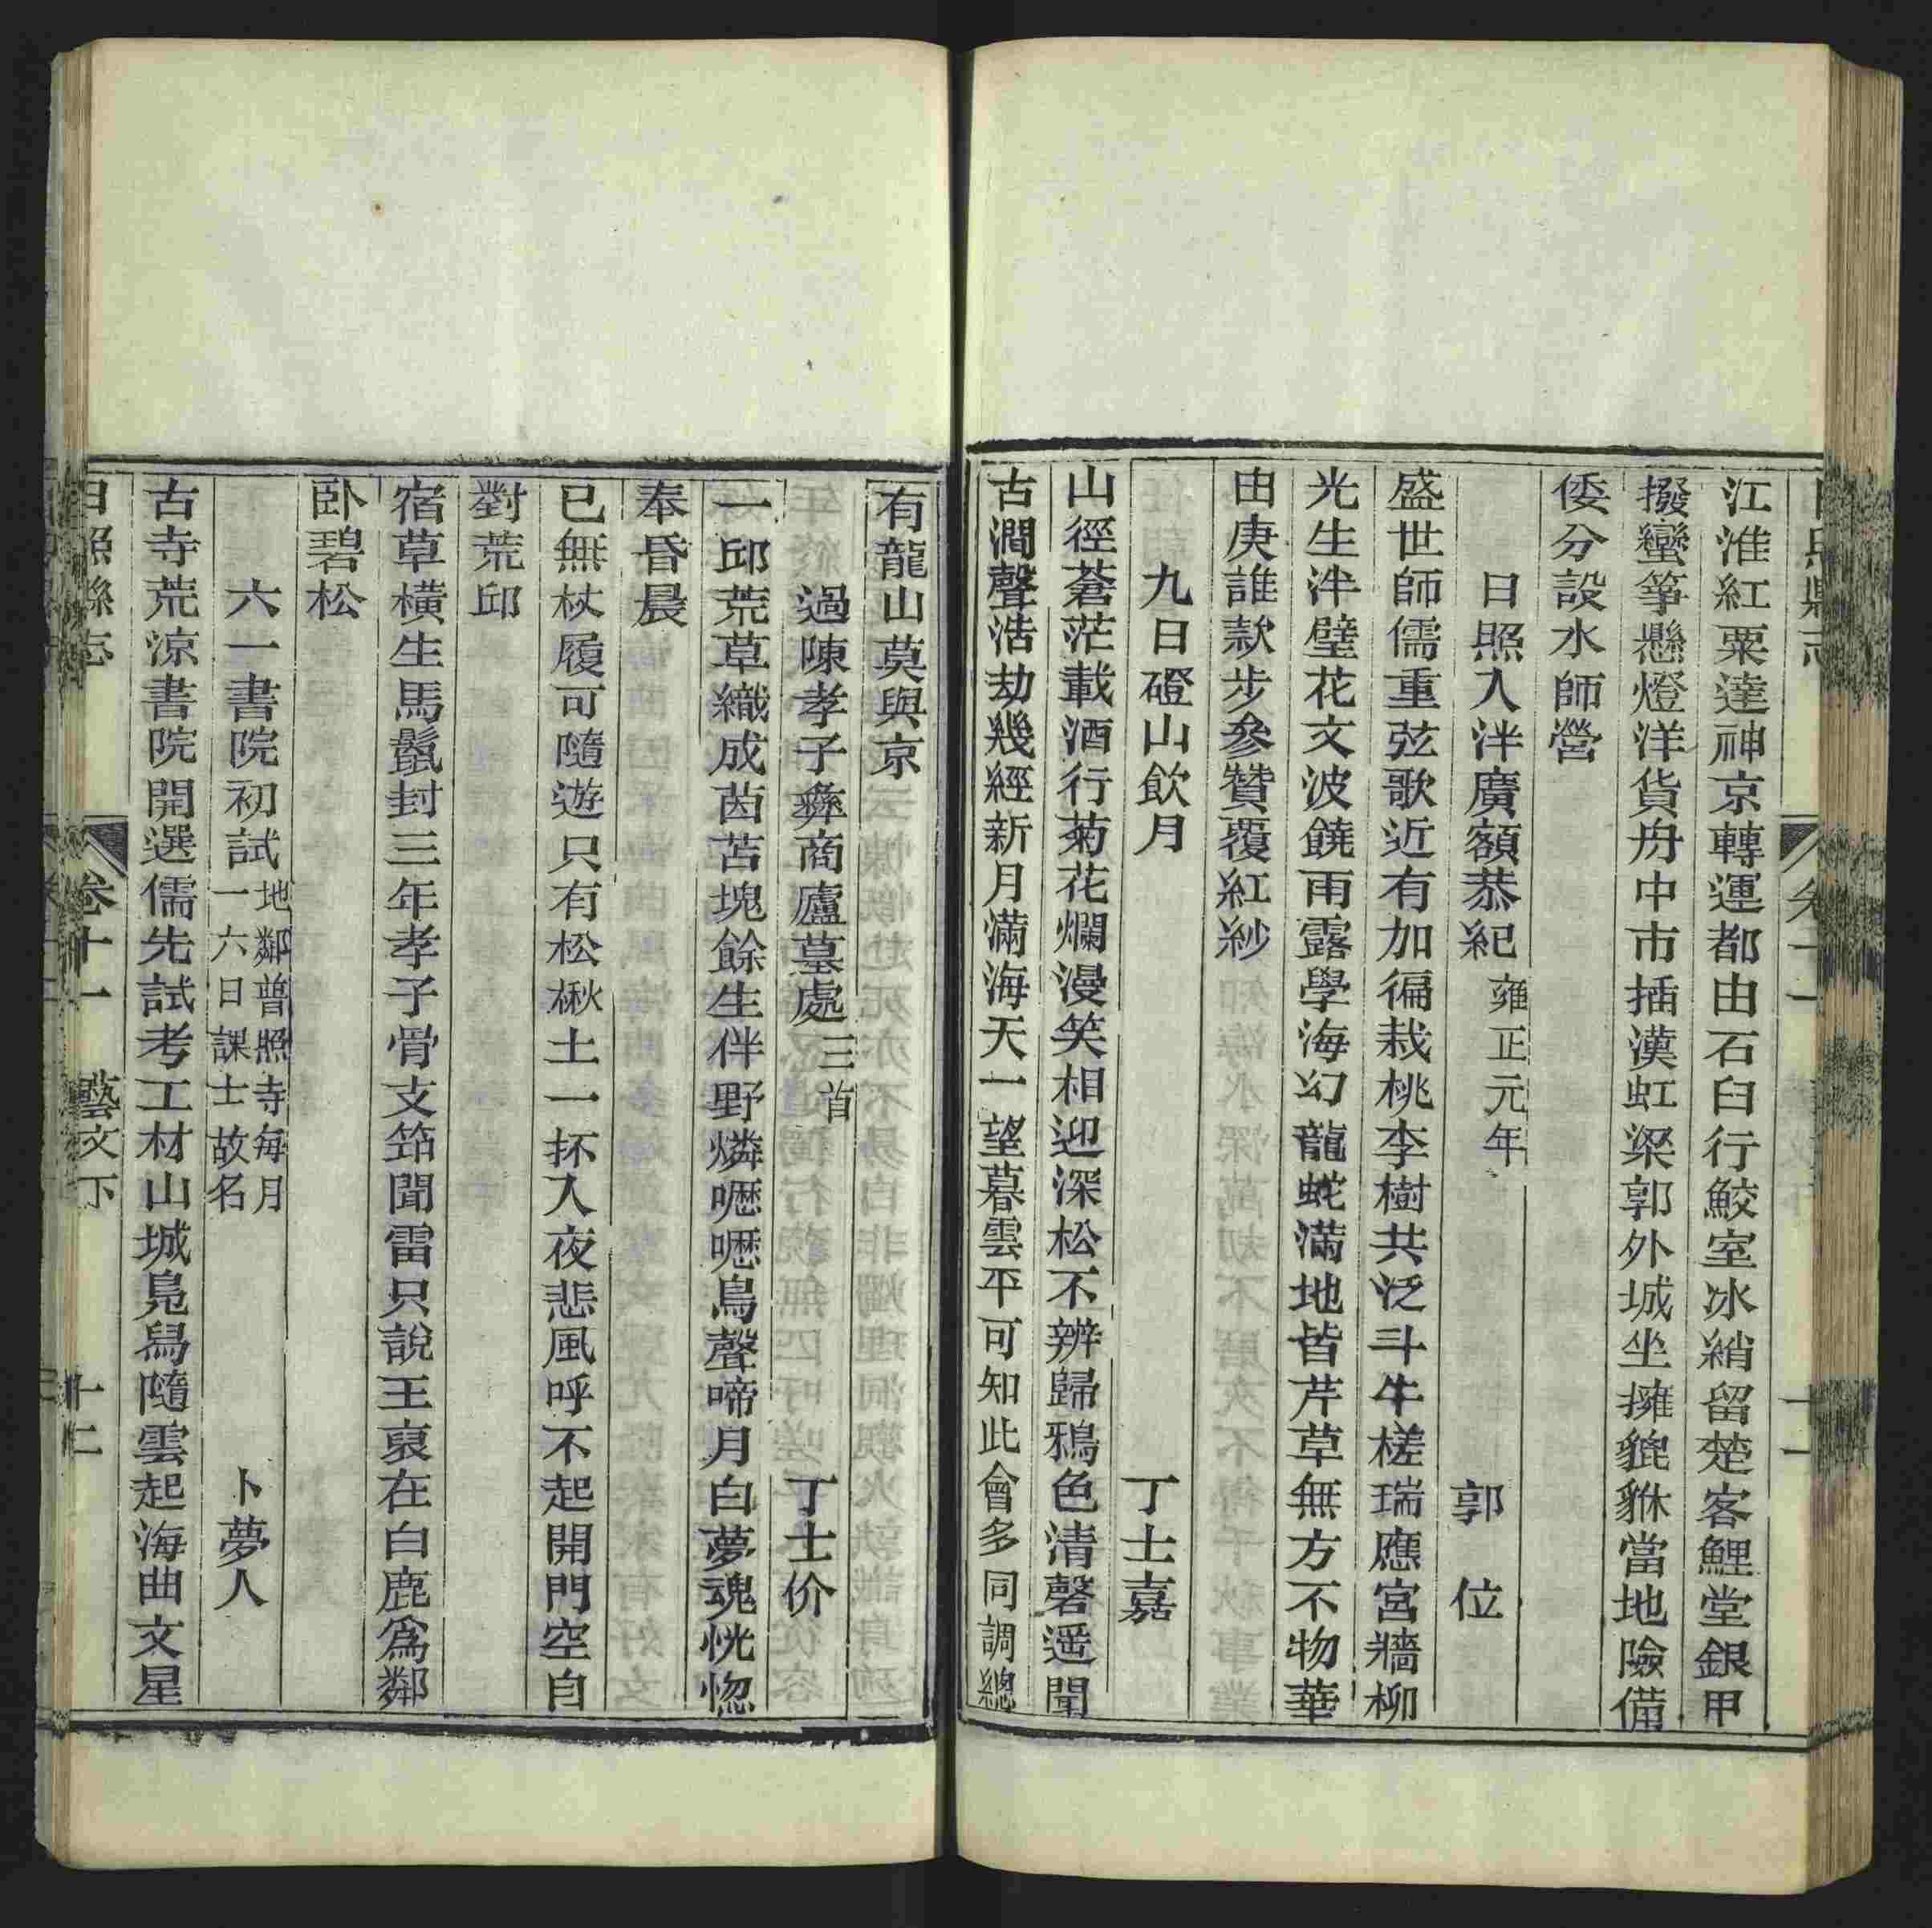 江淮紅粟達神京轉運都由石臼行鮫室冰綃留楚客鯉堂銀甲
撥蠻箏懸燈洋貨舟中市插漢虹梁郭外城坐擁貔貅當地險備
倭分設水師營
日照入泮廣額恭紀 雍正元年 郭 位
盛世師儒重弦歌近有加徧栽桃李樹共泛斗牛槎瑞應宮牆柳
光生泮璧花文波饒雨露學海幻龍蛇滿地皆芹草無方不物華
由庚誰款步參贊覆紅紗
九日磴山飲月 丁士嘉
山徑蒼茫載酒行菊花爛漫笑相迎深松不辨歸鴉色清磬遥聞
古澗聲浩劫幾經新月滿海天一望暮雲平可知此會多同調總
有龍山莫與京
過陳孝子彝商廬墓處 三首 丁士价
一邱荒草織成茵苫塊餘生伴野燐嚦嚦鳥聲啼月白夢魂恍惚
奉昏晨
已無杖履可隨遊只有松楸土一抔入夜悲風呼不起開門空自
對荒邱
宿草橫生馬鬛封三年孝子骨支筇聞雷只說王裒在白鹿爲鄰
卧碧松
六一書院初試 地鄰普照寺每月一六日課士故名 卜夢人
古寺荒涼書院開選儒先試考工材山城鳧舄隨雲起海曲文星
日照縣志 卷十一 藝文下 十二